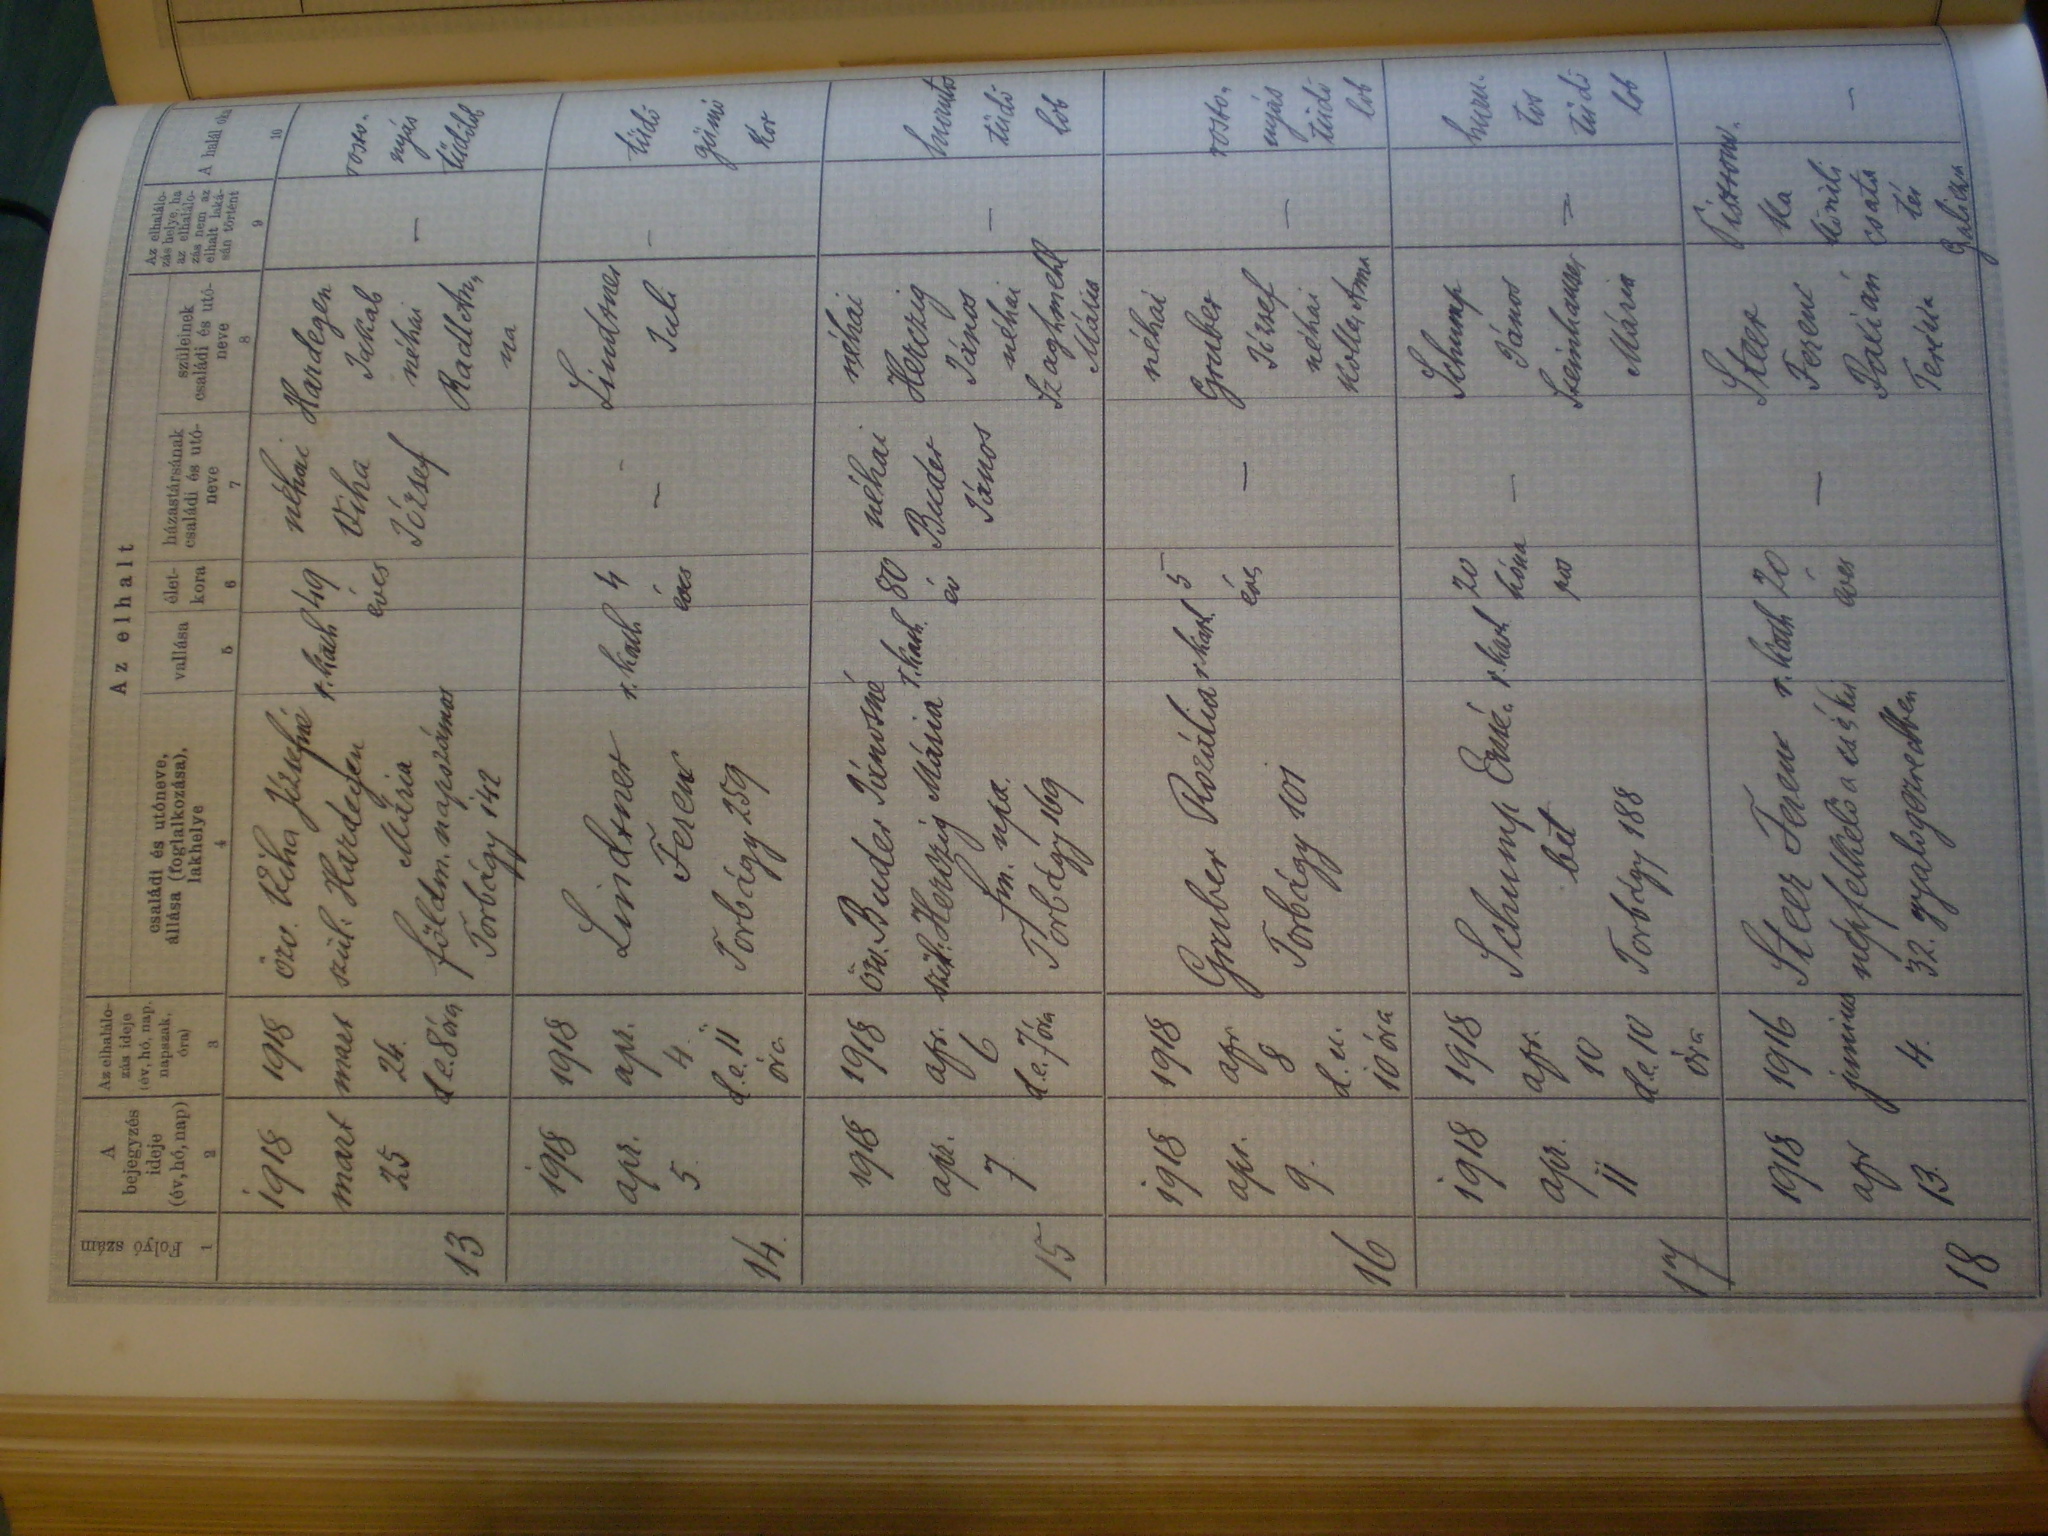 Az elhalt
Folyó szám
A bejegyzés ideje (év, hó, nap)
Az elhalálozás ideje (év, hó, nap, napszak, óra)
családi és utóneve, állása (foglalkozása), lakhelye
vallása
életkora
házastársának családi és utóneve
szüleinek családi és utóneve
Az elhalálozás helye, ha az elhalálozás nem az elhalt lakásán történt
A halál oka
1 2 3 4 5 6 7 8 9 10
13
1918
mart
25
1918
mart
24.
d.e. 8 óra
özv. Viha Józsefné
szül: Hardegen
Mária
földm. napszámos
Torbágy 142
r. kath
49
éves
néhai
Viha
József
Hardegen
Jakab
néhai
Radl An,
na
—
roso.
nyás
tüdőlob
14.
1918
apr.
5.
1918
apr.
4.
d.e. 11
óra
Lindtner
Ferenc
Torbágy 259
r. kath
4
éves
—
Lindtner
Juli
—
tüdő
gümő
kór
15
1918
apr.
7
1918
apr.
6
d.e. 7 óra
özv. Buder Jánosné
szül: Herczig Mária
fm. nsza.
Torbágy 169
r. kath.
80
év
néhai
Buder
János
néhai
Herczig
János
néhai
Mária
—
hurutos
tüdő
lob
16
1918
apr.
9.
1918
apr
8
d. u.
10 óra
Gruber Rozália
Torbágy 101
r. kath.
5
éves
—
néhai
Gruber
József
néhai
Anna
—
roso.
nyás
tüdő
lob
17
1918
apr.
11
1918
apr.
10
d.e. 10
óra
Schump Erzsé.
bet
Torbágy 188
r. kath
20
hóna
pos
—
Schump
János
Steinhauser
Mária
—
huru.
tos
tüdő
lob
18
1918
apr
13.
1916
junius
4.
Steer Ferenc
népfelkelő a cs és kir
32. gyalogezredben
r. kath
20
éves
—
Steer
Ferenc
Terézia
ka
körüli
csata
tér
Galicia
—